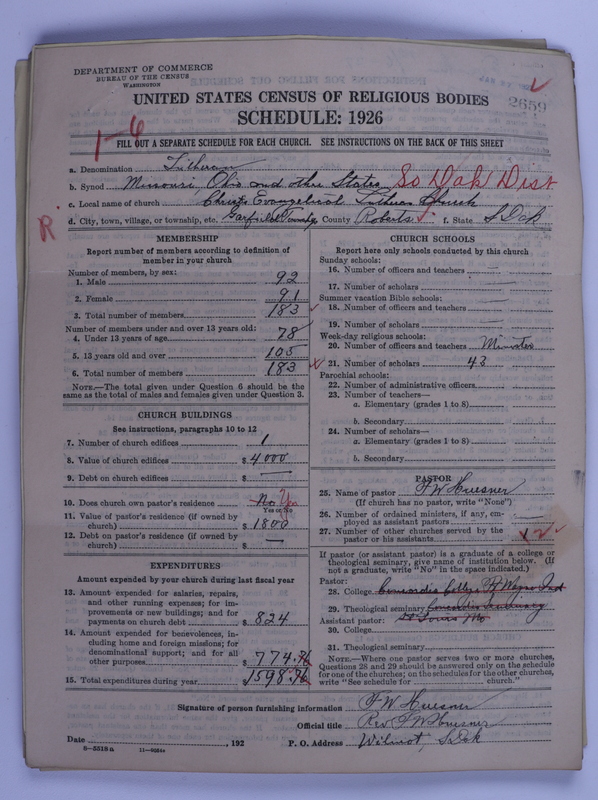 DEPARTMENT OF COMMERCE
BUREAU OF THE CENSUS
WASHINGTON
UNITED STATES CENSUS OF RELIGIOUS BODIES
2659
SCHEDULE: 1926
1-6
FILL OUT A SEPARATE SCHEDULE FOR EACH CHURCH. SEE INSTRUCTIONS ON THE BACK OF THIS SHEET
a. Denomination Lutheran
b. Synod Missouri, Ohio and other States So Dak Dist
c. Local name of church Christ Evangelical Lutheran Church
R.
d. City, town, village, or township, etc. Garfield Township County Roberts f. State S Dak
MEMBERSHIP
Report number of members according to definition of member in your church
Number of members, by sex:
1. Male 92
2. Female 91
3. Total number of members 183
Number of members under and over 13 years old:
4. Under 13 years of age 78
5. 13 years old and over 105
6. Total number of members 183
NOTE.—The total given under Question 6 should be the same as the total of males and females given under Question 3.
CHURCH BUILDINGS
See instructions, paragraphs 10 to 12
7. Number of church edifices 1
8. Value of church edifices $ 4000
9. Debt on church edifices $ —
10. Does church own pastor's residence No Yes
Yes or No
11. Value of pastor's residence (if owned by church) $ 1800
12. Debt on pastor's residence (if owned by church) $ —
EXPENDITURES
Amount expended by your church during last fiscal year
13. Amount expended for salaries, repairs, and other running expenses; for improvements or new buildings; and for payments on church debt $ 824
14. Amount expended for benevolences, including home and foreign missions; for denominational support; and for all other purposes $ 774.76
15. Total expenditures during year $ 1598.76
CHURCH SCHOOLS
Report here only schools conducted by this church
Sunday schools:
16. Number of officers and teachers
17. Number of scholars
Summer vacation Bible schools:
18. Number of officers and teachers
19. Number of scholars
Week-day religious schools:
20. Number of officers and teachers Minister
21. Number of scholars 43
Parochial schools:
22. Number of administrative officers
23. Number of teachers—
a. Elementary (grades 1 to 8)
b. Secondary
24. Number of scholars—
a. Elementary (grades 1 to 8)
b. Secondary
PASTOR
25. Name of pastor F W Huesner
(If church has no pastor, write "None")
26. Number of ordained ministers, if any, employed as assistant pastors
27. Number of other churches served by the pastor or his assistants
If pastor (or assistant pastor) is a graduate of a college or theological seminary, give name of institution below. (If not a graduate, write "No" in the space indicated.)
Pastor:
28. College Concordia College Ft Wayne Ind
29. Theological seminary Concordia Seminary
Assistant pastor: St Louis Mo
30. College
31. Theological seminary
NOTE.—Where one pastor serves two or more churches, Questions 28 and 29 should be answered only on the schedule for one of the churches; on the schedules for the other churches, write "See schedule for church."
Signature of person furnishing information F W Huesner
Official title Rev. F W Huesner
Date , 192 P. O. Address Wilmot, S Dak